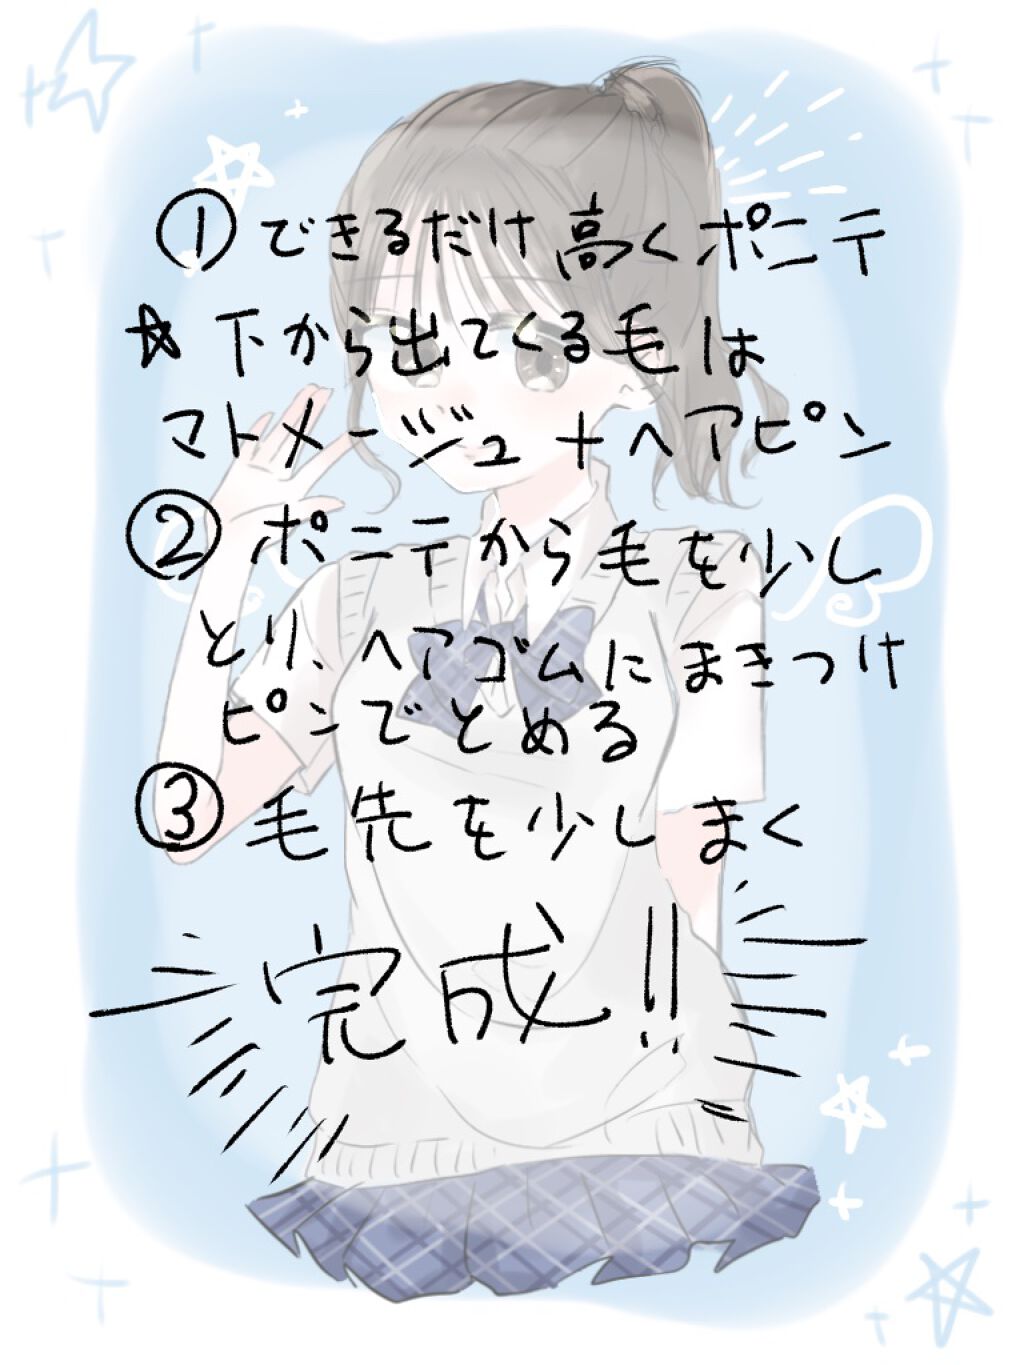 ①できるだけ高くポニテ
☆下から出てくる毛は
マトメージュ+ヘアピン
②ポニテから毛を少し
とり、ヘアゴムにまきつけ
ピンでとめる
③毛先を少しまく
完成!!